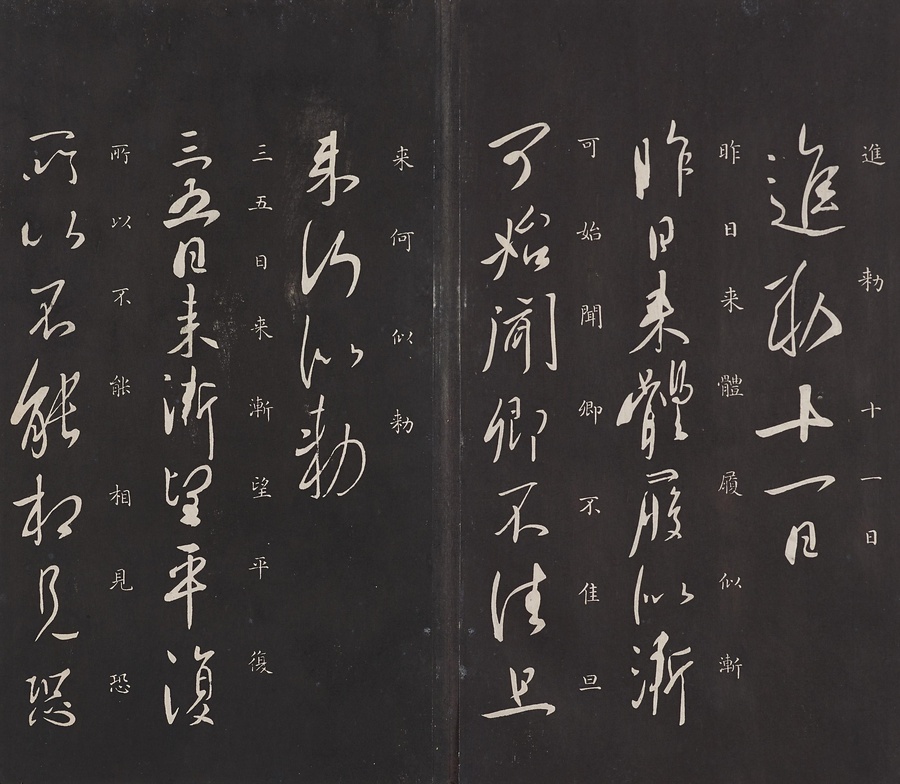 進勑十一日
進勑十一日
昨日来體履似漸
昨日来體履似漸
可始聞卿不佳旦
可始聞卿不佳旦
来何似勑
来何似勑
三五日来漸望平復
三五日来漸望平復
所以不能相見恐
所以不能相見恐